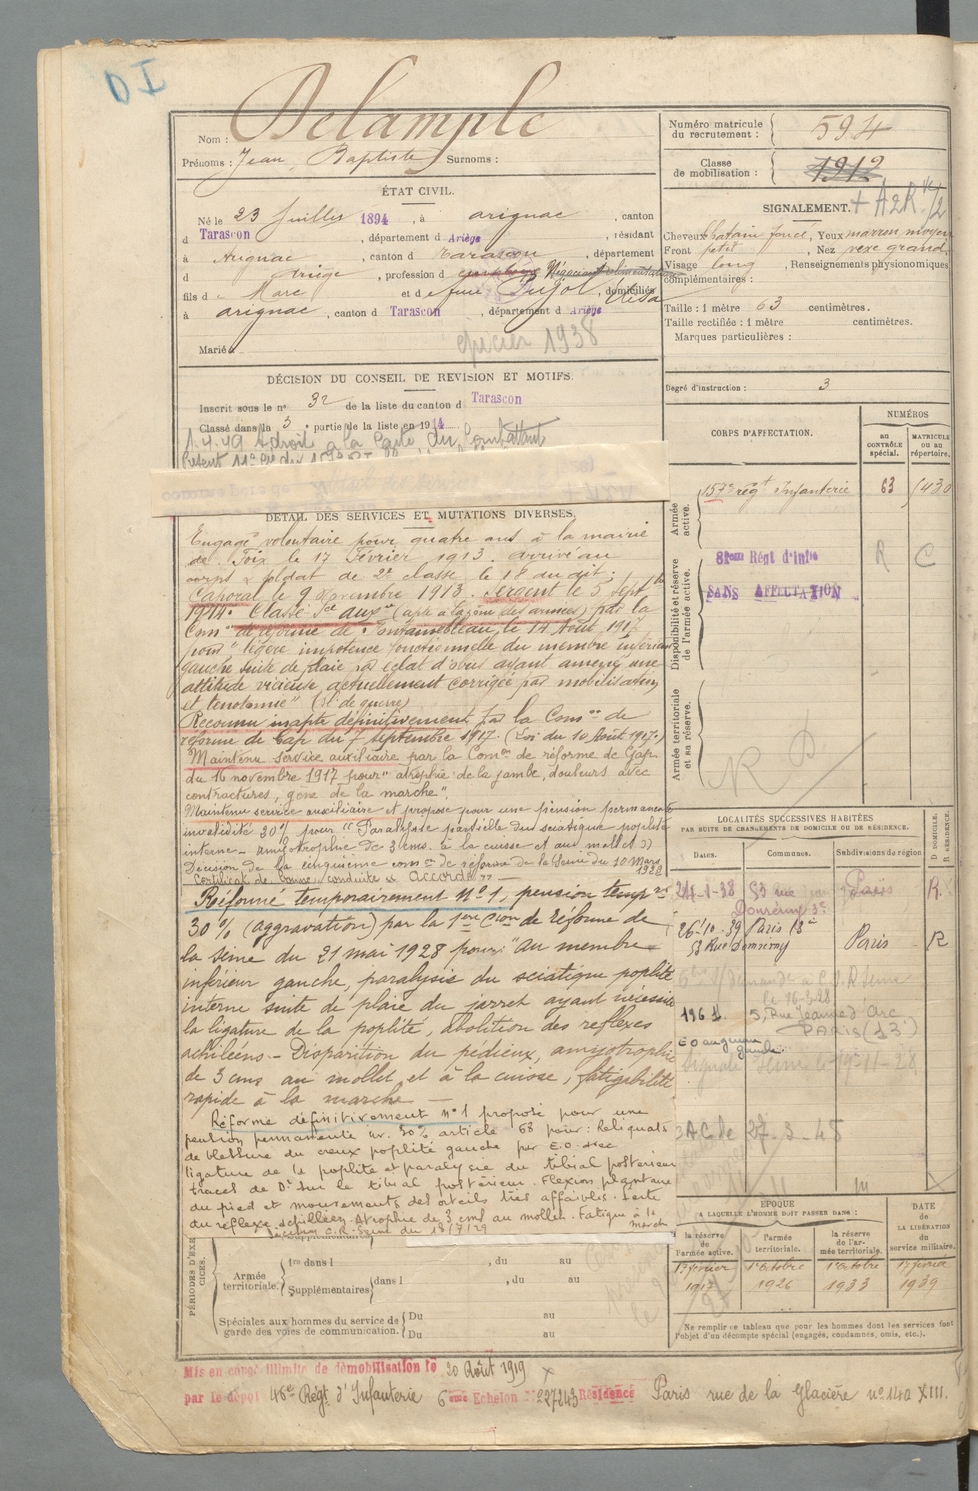 Nom : Delample
Prénoms : Jean Baptiste Surnoms :
ÉTAT CIVIL.
Né le 23 Juillet 1894, à Arignac, canton
d Tarascon, département d Ariège, résidant
à Arignac, canton d Tarascon, département
d Ariège, profession d Négociant alimentation
fils d e Marc et d e feue Pujol Elisa, domiciliés
à Arignac, canton d Tarascon, département d Ariège
Marié à
épicier 1938
DÉCISION DU CONSEIL DE REVISION ET MOTIFS.
Inscrit sous le n° 32 de la liste du canton d Tarascon
Classé dans la 3e partie de la liste en 1914
1.4.49 A droit à la Carte du Combattant
DÉTAIL DES SERVICES ET MUTATIONS DIVERSES.
Engagé volontaire pour quatre ans à la mairie
de Foix le 17 Février 1913. arrivé au
corps & soldat de 2e classe le 18 du dit.
Caporal le 9 Novembre 1913. Sergent le 5 Septbre
1914. Classé Sce auxre (apte à la zône des armées) par la
Comon de réforme de Fontainebleau, le 14 Août 1917
pour "légère impotence fonctionnelle du membre inférieur
gauche suite de plaie par éclat d'obus ayant amené une
attitude vicieuse actuellement corrigée par mobilisation
et tenotomie" (Bl. de guerre)
Reconnu inapte définitivement par la Comon de
réforme de Gap du 7 septembre 1917. (Loi du 10 Août 1917.)
Maintenu service auxiliaire par la Comon de réforme de Gap
du 16 novembre 1917 pour "atrophie de la jambe, douleurs avec
contractures, gêne de la marche".
Maintenu service auxiliaire et proposé pour une pension permanente
invalidité 30% pour "Paralysie partielle du sciatique poplité
interne - amyotrophie de 3 cms. à la cuisse et au mollet"
Décision de la cinquième comon de réforme de la Seine du 10 Mars 1920
Certificat de bonne conduite "Accordé"
Réformé temporairement N° 1, pension tempre
30% (aggravation) par la 1ère Cion de réforme de
la Seine du 21 mai 1928 pour: "au membre
inférieur gauche, paralysie du sciatique poplité
interne suite de plaie du jarret ayant nécessité
la ligature de la poplité, abolition des reflexes
achiléens - Disparition du pédieux, amyotrophie
de 3 cms au mollet et à la cuisse, fatigabilité
rapide à la marche -
Réformé définitivement n° 1 proposé pour une
pension permanente inv. 30% article 68 pour: Reliquats
de blessure du creux poplité gauche par E.O. avec
ligature de la poplité et paralysie du tibial postérieur
traces de Dr sur le tibial postérieur. Flexion plantaire
du pied et mouvements des orteils très affaiblis. Perte
du réflexe achilléen. Atrophie de 3 cms au mollet. Fatigue à la marche
Décision C.R. Seine du 18/7/29
PÉRIODES D'EXERCICES.
Supplémentaires
Armée territoriale.
1re dans l , du au
Supplémentaires dans l , du au
Spéciales aux hommes du service de garde des voies de communication.
Du au
Du au
Mis en congé illimité de démobilisation le 20 Août 1919 X
par le dépôt 46e Régt d'Infanterie 6ème Echelon N° 227243 Résidence Paris rue de la Glacière n° 140 XIII.
Numéro matricule du recrutement : 594
Classe de mobilisation : 1912
SIGNALEMENT.
Cheveux chatain foncé, Yeux marron moyen
Front petit, Nez vexe grand,
Visage long, Renseignements physionomiques
complémentaires :
Taille : 1 mètre 63 centimètres.
Taille rectifiée : 1 mètre centimètres.
Marques particulières :
Degré d'instruction : 3
CORPS D'AFFECTATION.
NUMÉROS
au CONTRÔLE spécial.
MATRICULE ou au répertoire.
Armée active.
157e régt Infanterie 63 1430
Disponibilité et réserve de l'armée active.
81eme Régt d'Infie R C
SANS AFFECTATION
Armée territoriale et sa réserve.
LOCALITÉS SUCCESSIVES HABITÉES
PAR SUITE DE CHANGEMENTS DE DOMICILE OU DE RÉSIDENCE.
Dates. Communes. Subdivisions de région D DOMICILE. R RÉSIDENCE.
24-1-38 53 rue Domrémy 3e Paris R.
26-10-39 Paris 13e
53 Rue Domremy Paris R
le 16-3-28
5, Rue Jeanne d'Arc
PARIS (13)
Signalé Seine le 19-11-28
27-3-45
ÉPOQUE
A LAQUELLE L'HOMME DOIT PASSER DANS :
la réserve de l'armée active. l'armée territoriale. la réserve de l'armée territoriale.
DATE de LA LIBÉRATION du service militaire.
17 février 1917
1er octobre 1926
1er octobre 1933
17 février 1939
Ne remplir ce tableau que pour les hommes dont les services font
l'objet d'un décompte spécial (engagés, condamnés, omis, etc.).